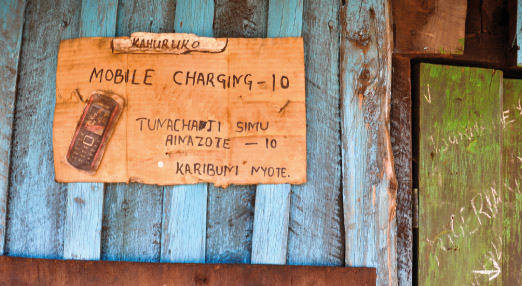 KAHURUKO
MOBILE CHARGING - 10
TUNACHAJI SIMU
AINAZOTE - 10
KARIBUNI NYOTE.